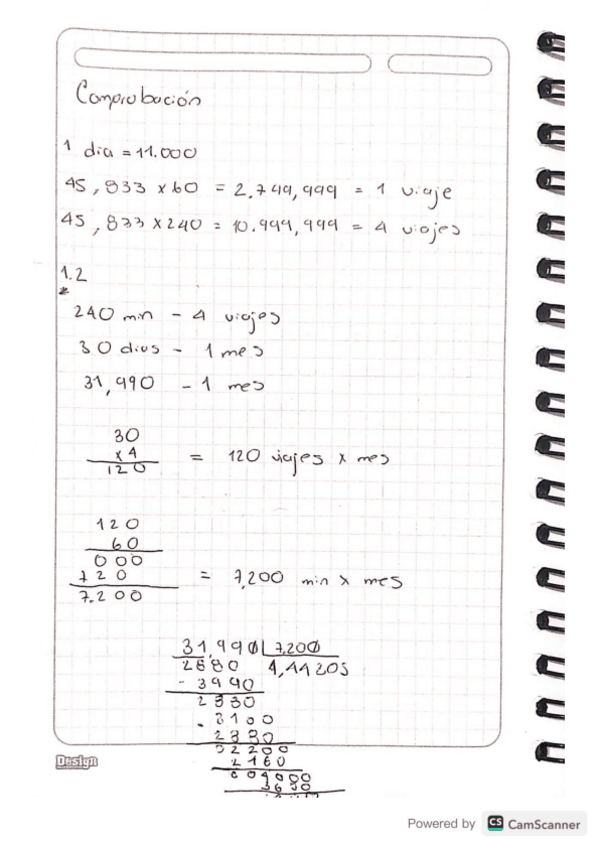 Comprobación
1 dia = 11.000
45,833 x 60 = 2.749,999 = 1 viaje
45,833 x 240 = 10.999,999 = 4 viajes
1.2
*
240 min - 4 viajes
30 dias - 1 mes
31,990 - 1 mes
30
x 4
120 = 120 viajes x mes
120
60
000
720 = 7,200 min x mes
7.200
31,990 | 7,200
2880 4,44205
- 3990
2880
- 3100
2880
02200
2160
Design
Powered by CS CamScanner